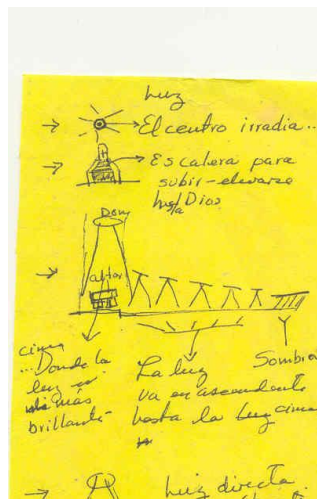 Luz
El centro irradia..
Escalera para
subir - elevarse
hasta Dios
Dom
altar
cima
...Donde la
luz es
más
brillante -
La luz
va en ascendente
hasta la luz cima
Sombra
Luz directa